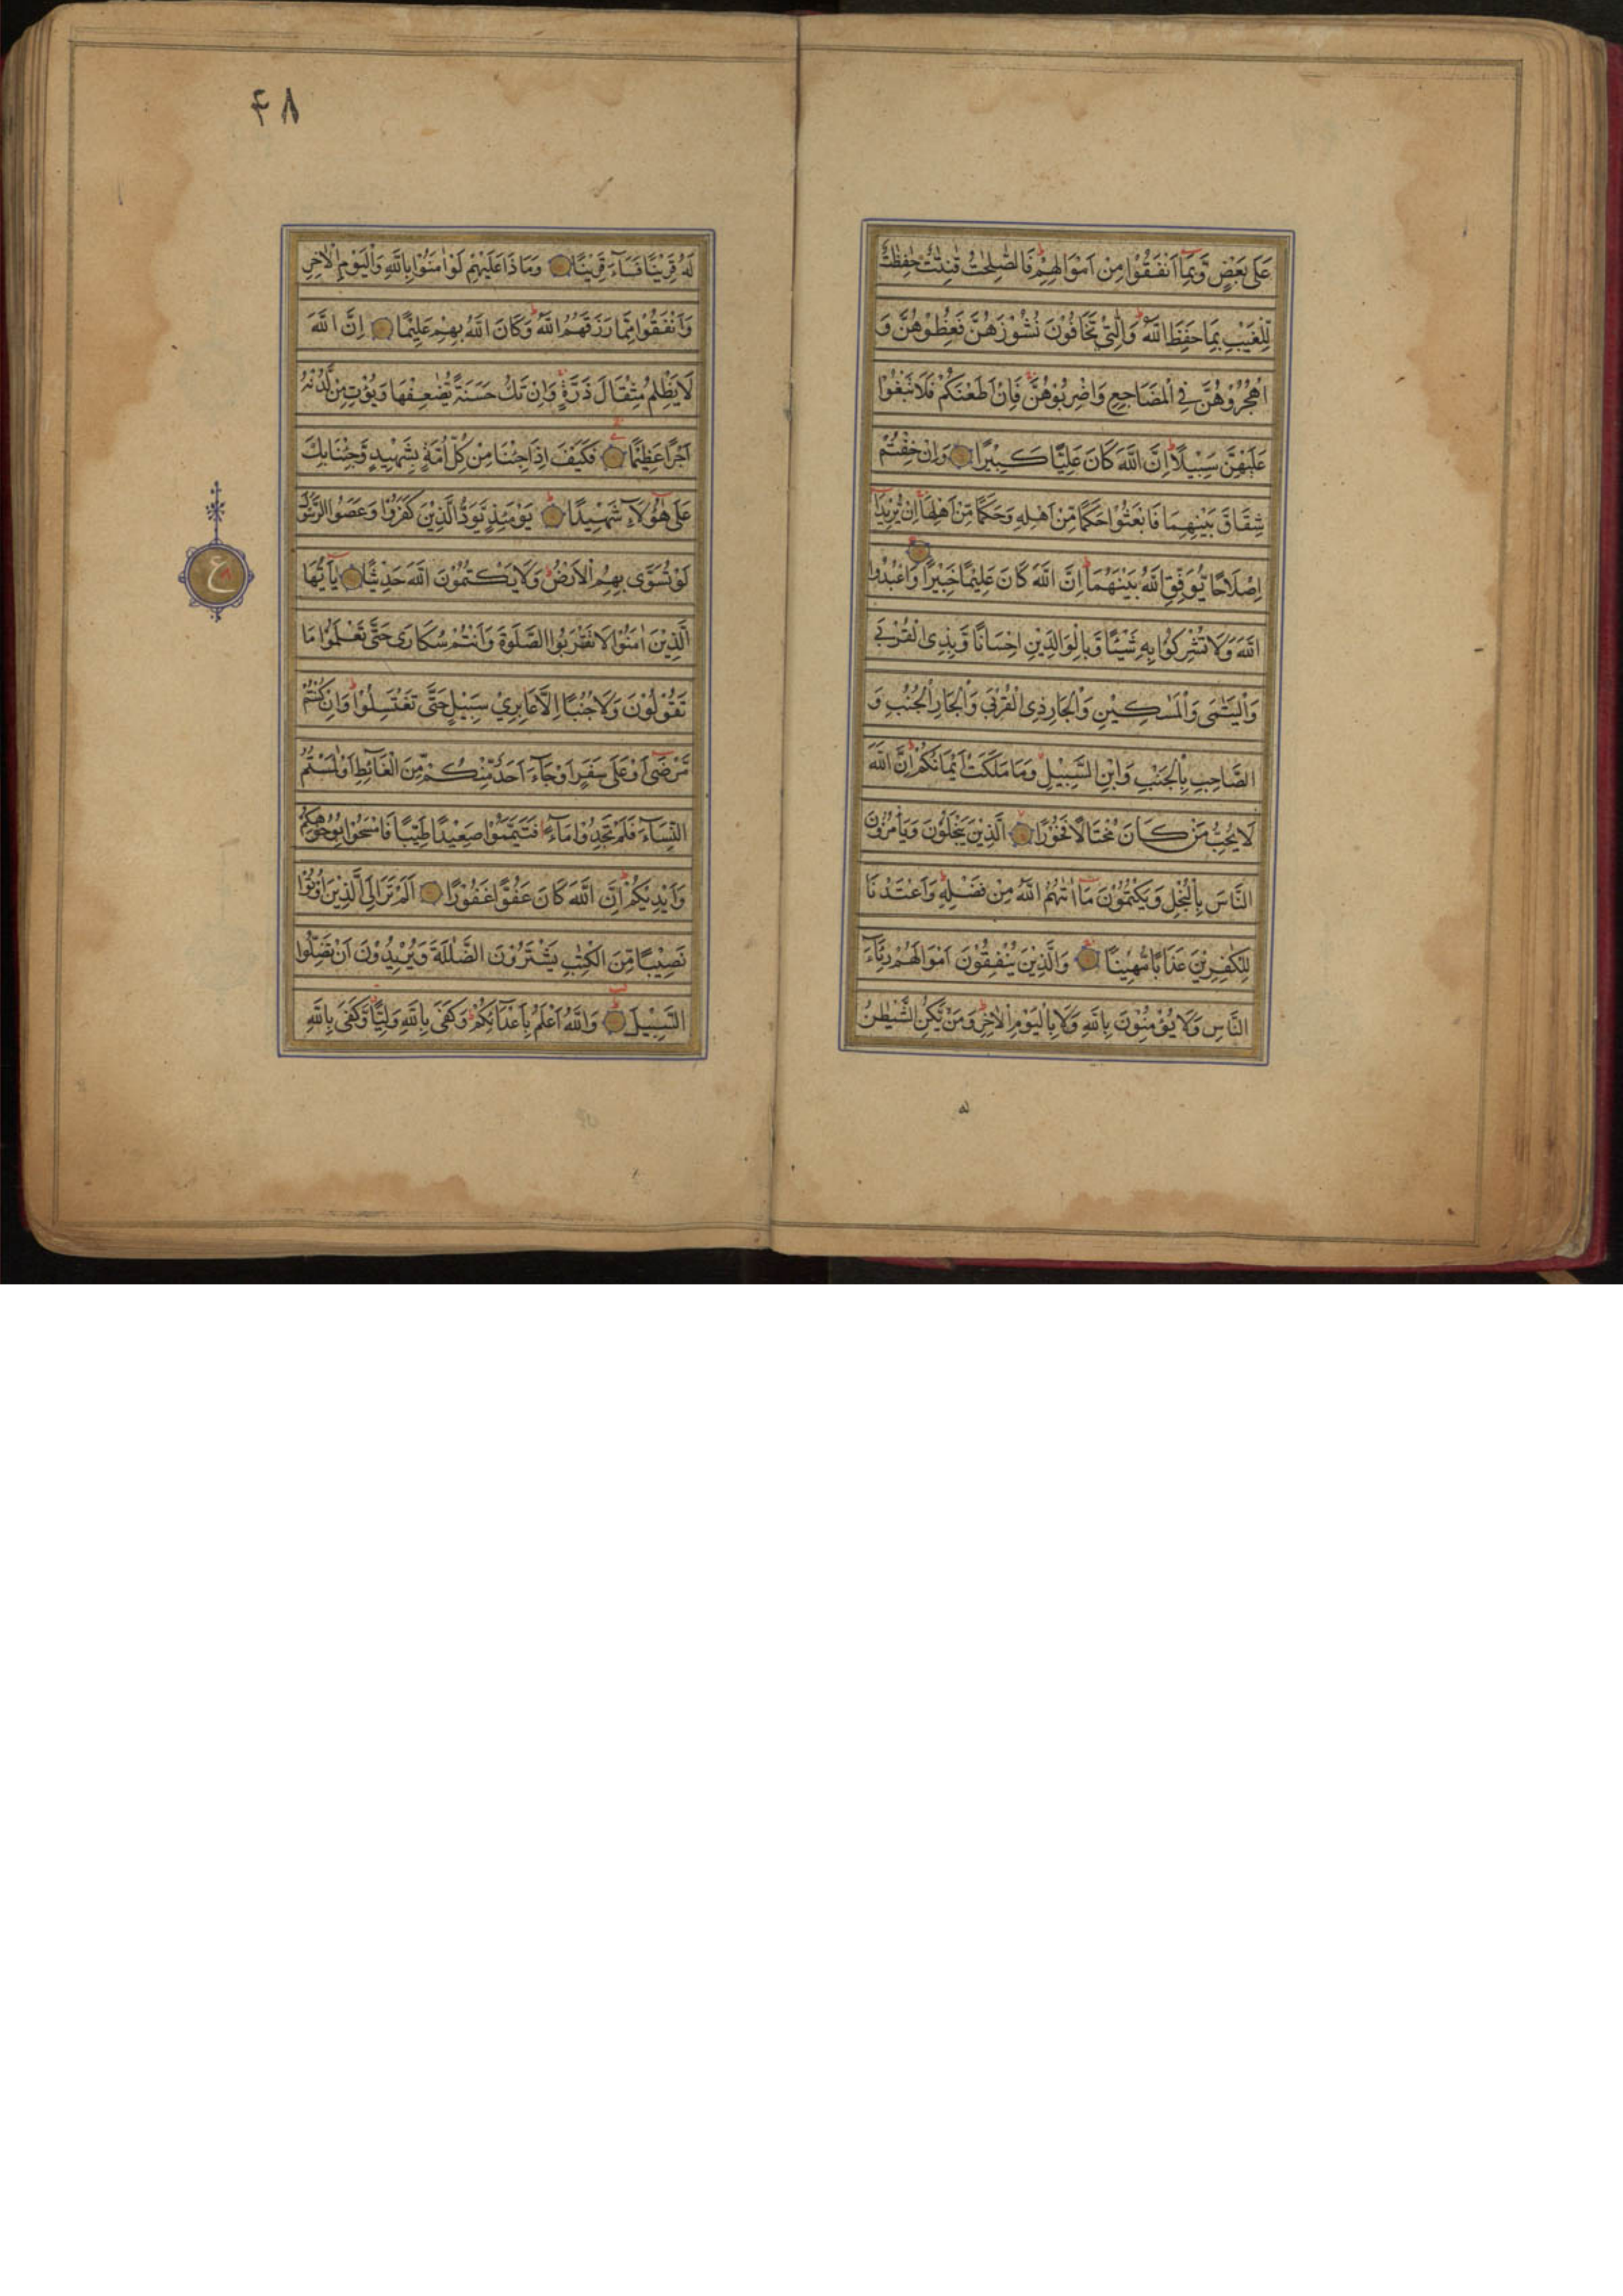 عَلَى بَعْضٍ وَّبِمَآ اَنْفَقُوْا مِنْ اَمْوَالِهِمْ فَالصّٰلِحٰتُ قٰنِتٰتٌ حٰفِظٰتٌ
لِّلْغَيْبِ بِمَا حَفِظَ اللّٰهُ وَالّٰتِيْ تَخَافُوْنَ نُشُوْزَهُنَّ فَعِظُوْهُنَّ وَ
اهْجُرُوْهُنَّ فِي الْمَضَاجِعِ وَاضْرِبُوْهُنَّ فَاِنْ اَطَعْنَكُمْ فَلَا تَبْغُوْا
عَلَيْهِنَّ سَبِيْلًا اِنَّ اللّٰهَ كَانَ عَلِيًّا كَبِيْرًا وَاِنْ خِفْتُمْ
شِقَاقَ بَيْنِهِمَا فَابْعَثُوْا حَكَمًا مِّنْ اَهْلِهِ وَحَكَمًا مِّنْ اَهْلِهَا اِنْ يُّرِيْدَآ
اِصْلَاحًا يُّوَفِّقِ اللّٰهُ بَيْنَهُمَا اِنَّ اللّٰهَ كَانَ عَلِيْمًا خَبِيْرًا وَاعْبُدُوا
اللّٰهَ وَلَا تُشْرِكُوْا بِهِ شَيْئًا وَّبِالْوَالِدَيْنِ اِحْسَانًا وَّبِذِى الْقُرْبٰى
وَالْيَتٰمَى وَالْمَسٰكِيْنِ وَالْجَارِ ذِى الْقُرْبٰى وَالْجَارِ الْجُنُبِ وَ
الصَّاحِبِ بِالْجَنْبِ وَابْنِ السَّبِيْلِ وَمَا مَلَكَتْ اَيْمَانُكُمْ اِنَّ اللّٰهَ
لَا يُحِبُّ مَنْ كَانَ مُخْتَالًا فَخُوْرًا الَّذِيْنَ يَبْخَلُوْنَ وَيَأْمُرُوْنَ
النَّاسَ بِالْبُخْلِ وَيَكْتُمُوْنَ مَآ اٰتٰهُمُ اللّٰهُ مِنْ فَضْلِهِ وَاَعْتَدْنَا
لِلْكٰفِرِيْنَ عَذَابًا مُّهِيْنًا وَالَّذِيْنَ يُنْفِقُوْنَ اَمْوَالَهُمْ رِئَآءَ
النَّاسِ وَلَا يُؤْمِنُوْنَ بِاللّٰهِ وَلَا بِالْيَوْمِ الْاٰخِرِ وَمَنْ يَّكُنِ الشَّيْطٰنُ
له
۴۸
لَهُ قَرِيْنًا فَسَآءَ قَرِيْنًا وَمَا ذَا عَلَيْهِمْ لَوْ اٰمَنُوْا بِاللّٰهِ وَالْيَوْمِ الْاٰخِرِ
وَاَنْفَقُوْا مِمَّا رَزَقَهُمُ اللّٰهُ وَكَانَ اللّٰهُ بِهِمْ عَلِيْمًا اِنَّ اللّٰهَ
لَا يَظْلِمُ مِثْقَالَ ذَرَّةٍ وَاِنْ تَكُ حَسَنَةً يُّضٰعِفْهَا وَيُؤْتِ مِنْ لَّدُنْهُ
اَجْرًا عَظِيْمًا فَكَيْفَ اِذَا جِئْنَا مِنْ كُلِّ اُمَّةٍ بِشَهِيْدٍ وَّجِئْنَا بِكَ
عَلَى هٰٓؤُلَآءِ شَهِيْدًا يَوْمَئِذٍ يَّوَدُّ الَّذِيْنَ كَفَرُوْا وَعَصَوُا الرَّسُوْلَ
لَوْ تُسَوَّى بِهِمُ الْاَرْضُ وَلَا يَكْتُمُوْنَ اللّٰهَ حَدِيْثًا يَآ اَيُّهَا
ع
الَّذِيْنَ اٰمَنُوْا لَا تَقْرَبُوا الصَّلٰوةَ وَاَنْتُمْ سُكَارَى حَتَّى تَعْلَمُوْا مَا
تَقُوْلُوْنَ وَلَا جُنُبًا اِلَّا عَابِرِيْ سَبِيْلٍ حَتَّى تَغْتَسِلُوْا وَاِنْ كُنْتُمْ
مَّرْضَى اَوْ عَلَى سَفَرٍ اَوْ جَآءَ اَحَدٌ مِّنْكُمْ مِّنَ الْغَآئِطِ اَوْ لٰمَسْتُمُ
النِّسَآءَ فَلَمْ تَجِدُوْا مَآءً فَتَيَمَّمُوْا صَعِيْدًا طَيِّبًا فَامْسَحُوْا بِوُجُوْهِكُمْ
وَاَيْدِيْكُمْ اِنَّ اللّٰهَ كَانَ عَفُوًّا غَفُوْرًا اَلَمْ تَرَ اِلَى الَّذِيْنَ اُوْتُوْا
نَصِيْبًا مِّنَ الْكِتٰبِ يَشْتَرُوْنَ الضَّلٰلَةَ وَيُرِيْدُوْنَ اَنْ تَضِلُّوا
السَّبِيْلَ وَاللّٰهُ اَعْلَمُ بِاَعْدَآئِكُمْ وَكَفَى بِاللّٰهِ وَلِيًّا وَّكَفَى بِاللّٰهِ